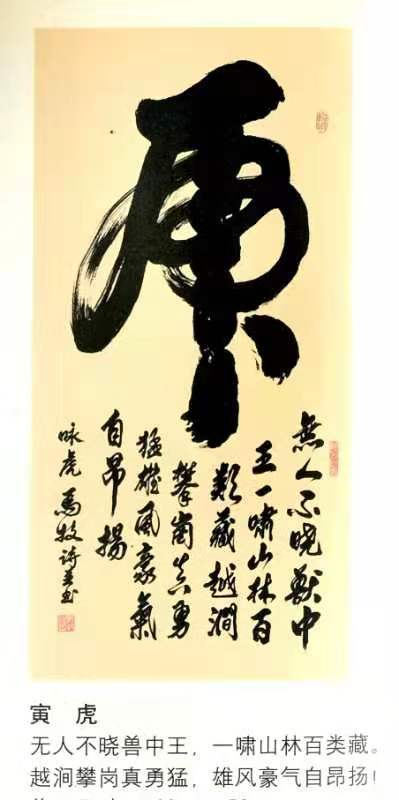 虎
無人不晓獸中
王一嘯山林百
類藏越澗
攀崗真勇
猛雄風豪氣
自昂揚
咏虎馬牧詩並书
寅 虎
无人不晓兽中王，一啸山林百类藏。
越涧攀岗真勇猛，雄风豪气自昂扬！